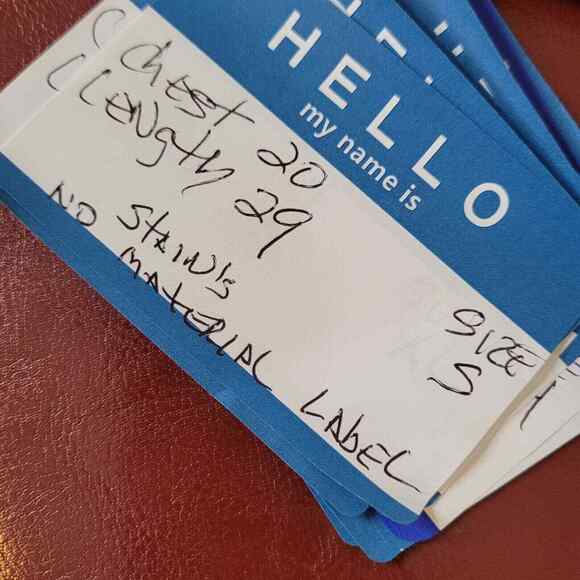 HELLO
my name is
Chest 20
LENgth 29
NO StAIN's
NO MAtERIAL LAbEL
SIZE
S